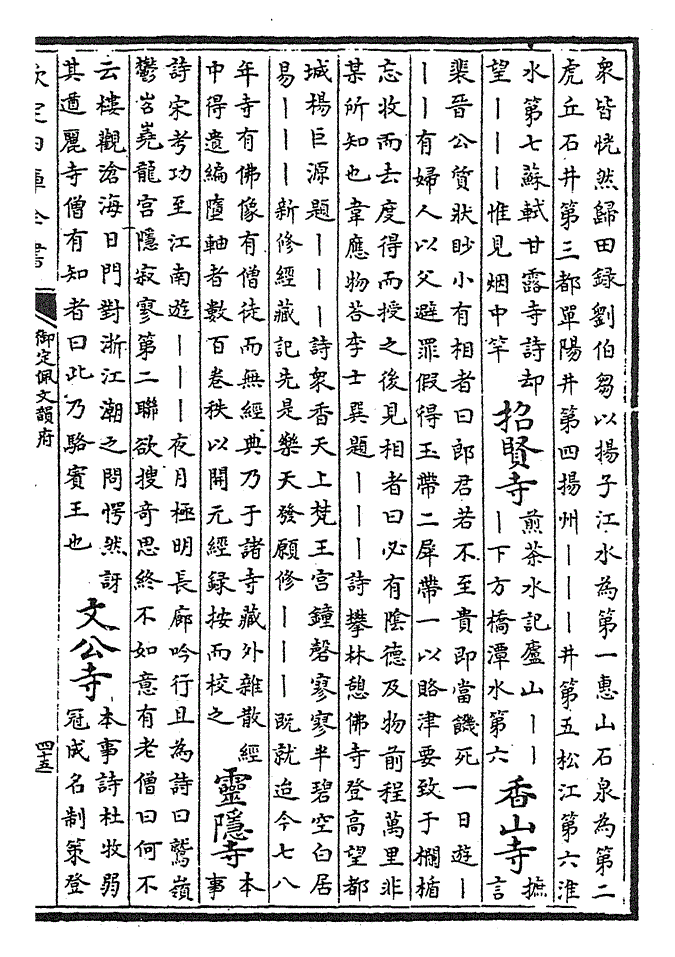 衆皆恍然歸田録劉伯芻以揚子江水為第一惠山石泉為第二
虎丘石井第三都單陽井第四揚州丨丨丨井第五松江第六淮
水第七蘇軾甘露寺詩却
望丨丨丨惟見烟中竿
招賢寺
煎茶水記廬山丨丨
丨下方橋潭水第六
香山寺
摭
言
裴晉公質狀眇小有相者曰郎君若不至貴即當饑死一日遊丨
丨丨有婦人以父避罪假得玉帶二犀帶一以賂津要致于欄楯
忘收而去度得而授之後見相者曰必有陰德及物前程萬里非
某所知也韋應物荅李士巽題丨丨丨詩攀林憩佛寺登高望都
城楊巨源題丨丨丨詩衆香天上梵王宫鐘磬寥寥半碧空白居
易丨丨丨新修經藏記先是樂天發願修丨丨丨既就迨今七八
年寺有佛像有僧徒而無經典乃于諸寺藏外雜散經
中得遺編墮軸者數百卷秩以開元經録按而校之
靈隱寺
本
事
詩宋考功至江南遊丨丨丨夜月極明長廊吟行且為詩曰鷲嶺
鬱岧嶤龍宫隱寂寥第二聯欲搜奇思終不如意有老僧曰何不
云樓觀滄海日門對浙江潮之問愕然訝
其遒麗寺僧有知者曰此乃駱賓王也
文公寺
本事詩杜牧弱
冠成名制策登
欽定四庫全書
御定佩文韻府
四十五